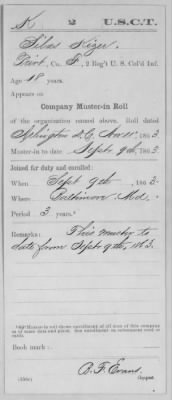 K 2 U.S.C.T.
Silas Kizer
Privt, Co. F, 2 Reg't U. S. Col'd Inf.
Age 18 years.
Appears on
Company Muster-in Roll
of the organization named above. Roll dated
Arlington D.C. Nov., 1863
Muster-in to date Sept 9th, 1863
Joined for duty and enrolled:
When Sept 9th, 1863
Where Baltimore Md.
Period 3 years.
Remarks: This muster to
date from Sept 9th, 1863.
Book mark:
B. F. Evans
Copyist.